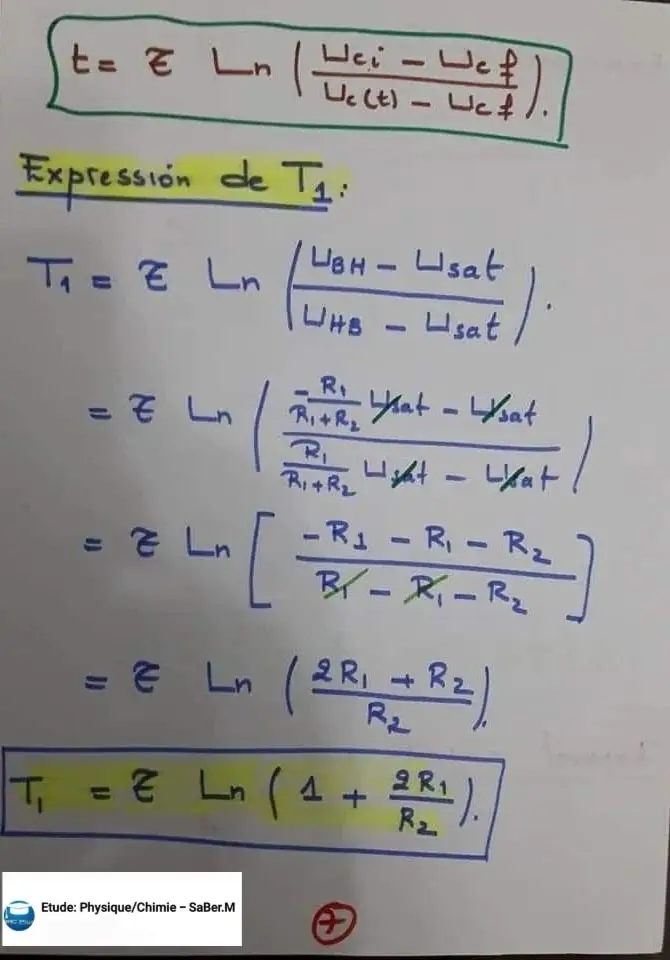 t = τ Ln ( (Uci - Ucf) / (Uc(t) - Ucf) ).
Expressión de T1 :
T1 = τ Ln ( (UBH - Usat) / (UHB - Usat) ).
= τ Ln ( (-R1/(R1+R2) Usat - Usat) / (R1/(R1+R2) Usat - Usat) )
= τ Ln [ (-R1 - R1 - R2) / (R1 - R1 - R2) ]
= τ Ln ( (2R1 + R2) / R2 ).
T1 = τ Ln ( 1 + 2R1/R2 ).
Etude: Physique/Chimie – SaBer.M
+